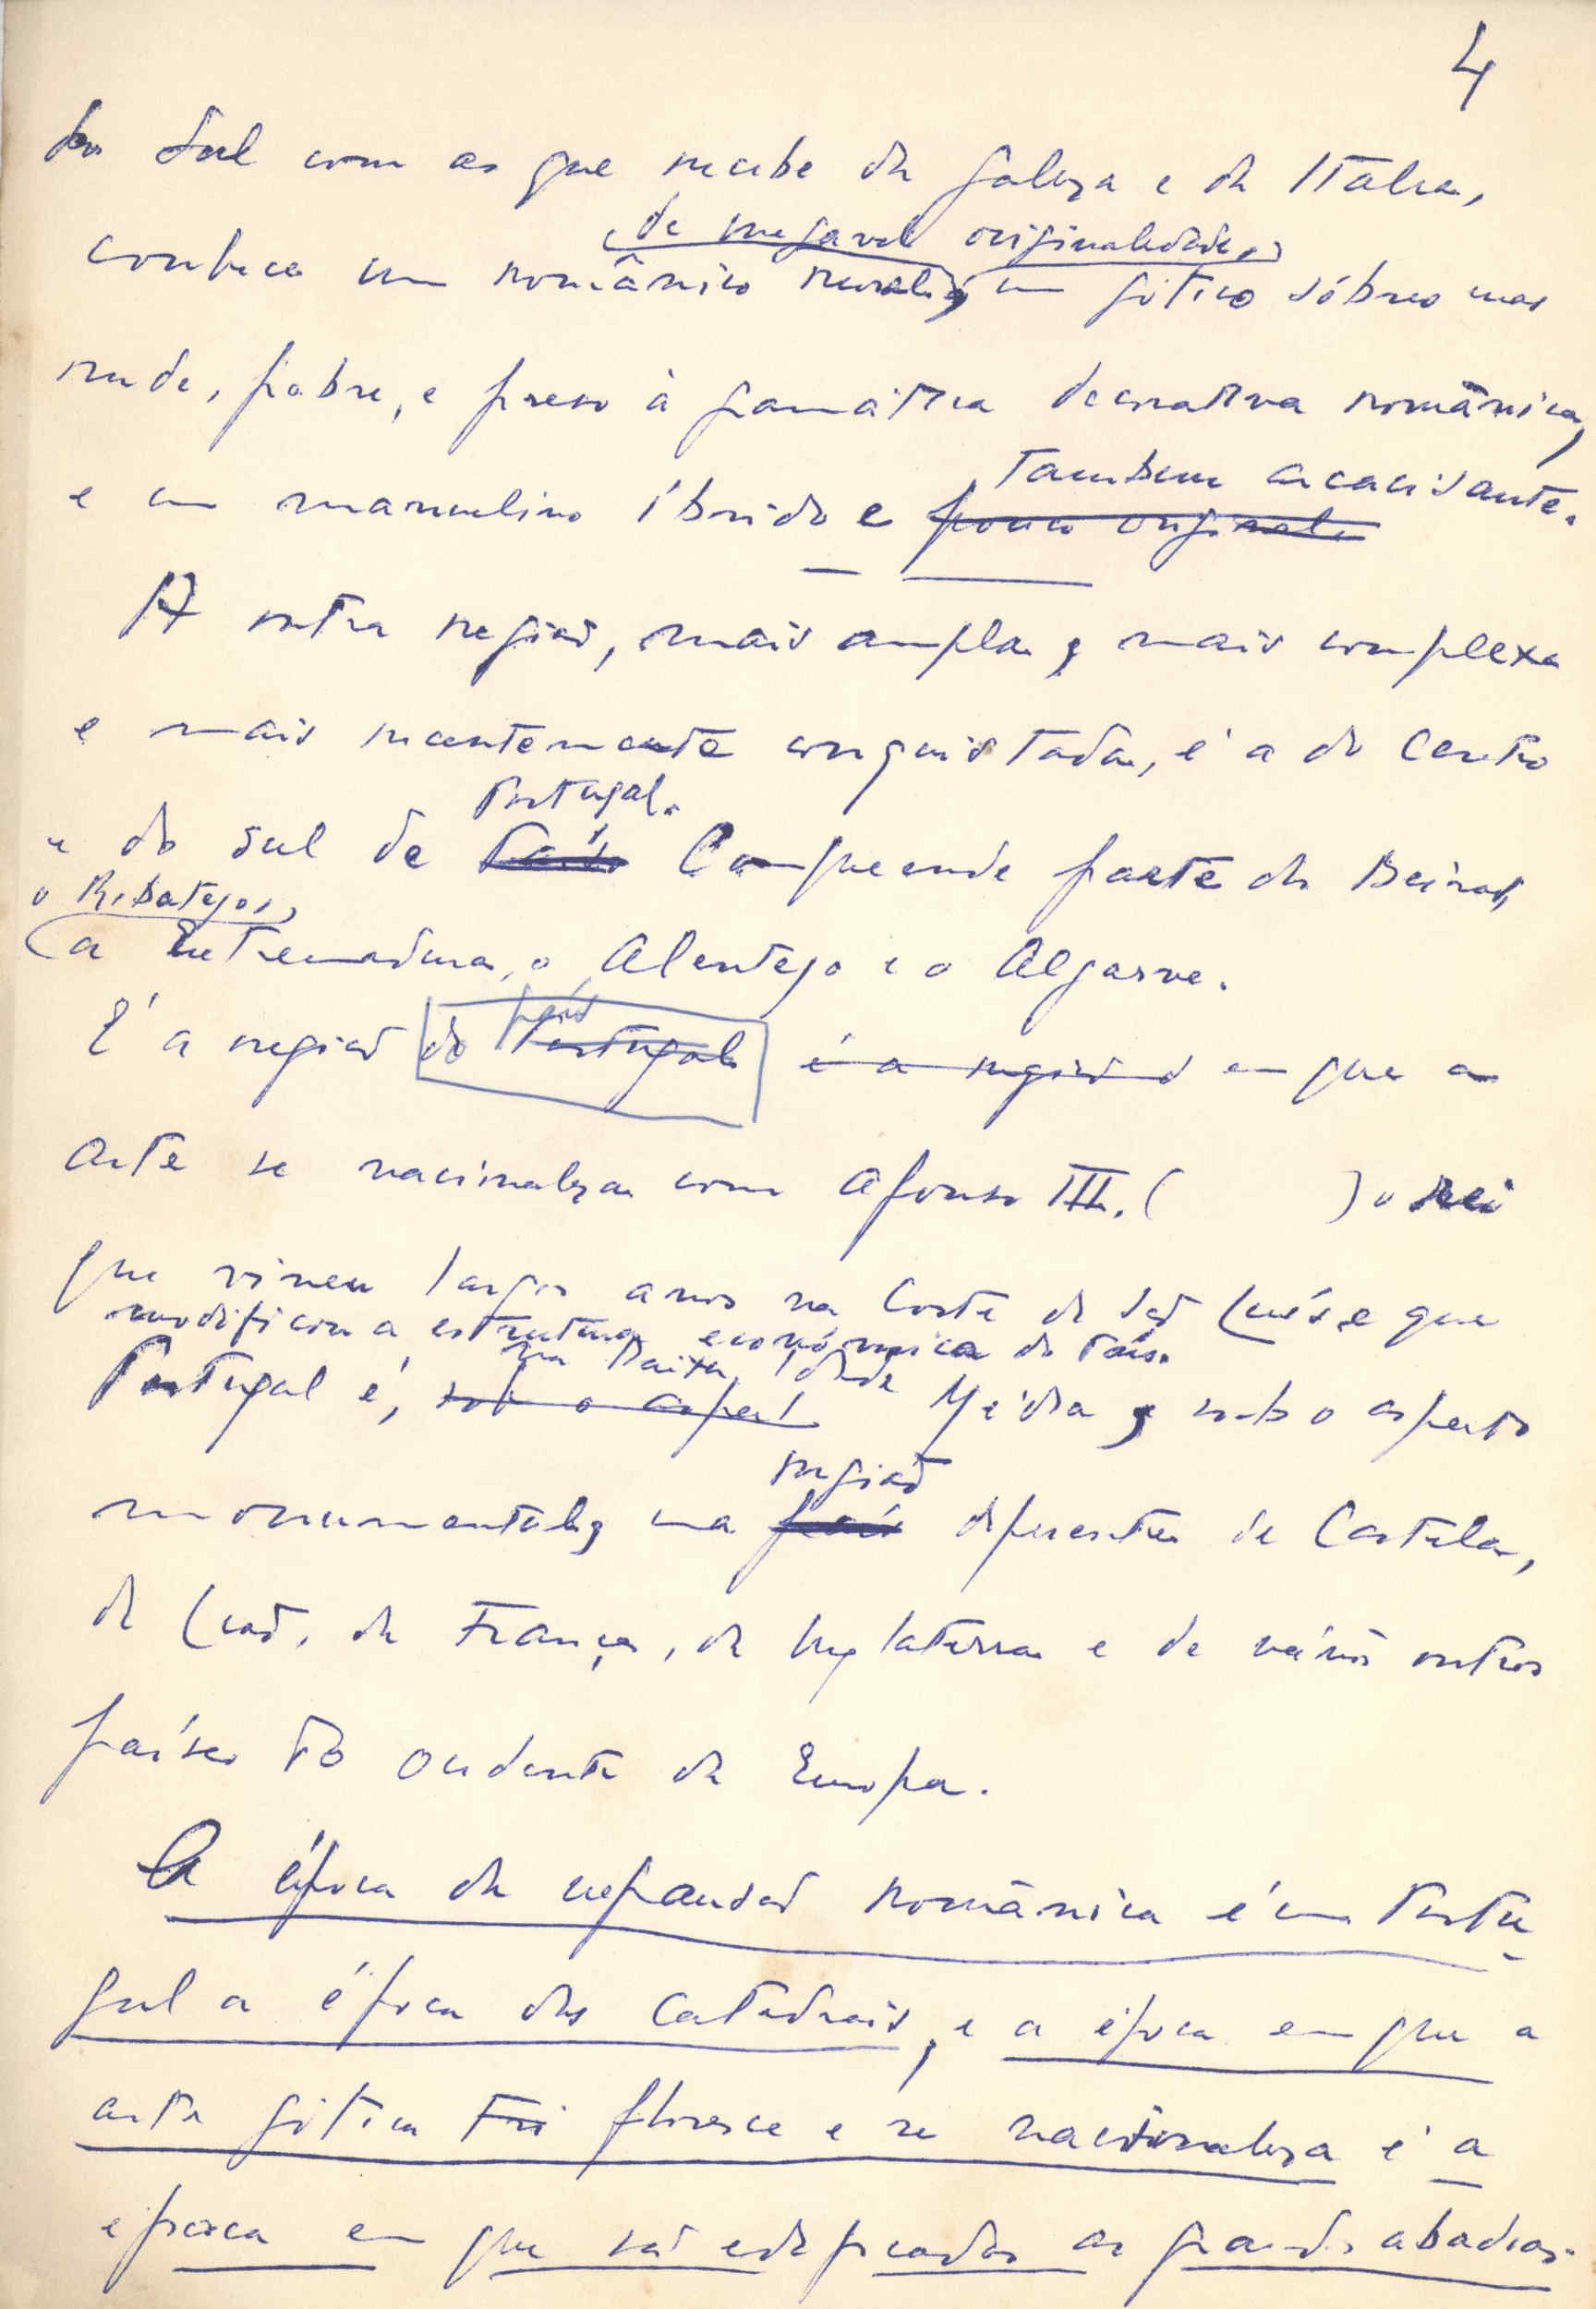 4
do Sul com as que recebe da Galiza e da Italia,
de inegavel originalidade,
conhece um românico rural, um gótico sóbrio mas
rude, pobre, e preso à gamática decorativa românica,
também arcaisante.
e um manuelino íbrido e pouco original
A outra região, mais ampla, mais complexa
e mais recentemente conquistada, é a do Centro
Portugal.
e do sul de País Compreende parte das Beiras,
o Ribatejo,
a Estremadura, o Alentejo e o Algarve.
país
É a região do Portugal é a região em que a
arte se nacionaliza com Afonso III. ( ) o rei
que viveu largos anos na Corte de São Luís, e que
modificou a estrutura económica do País.
na Baixa Idade
Portugal é, sob o aspect Média, sob o aspecto
região
monumental, uma país diferente de Castela,
de Leão, da França, da Inglaterra e de vários outros
países do ocidente da Europa.
A época da expansão românica é em Portu-
gal a época das Catedrais, e a época em que a
arte gótica floresce e se nacionaliza é a
época em que são edificadas as grandes abadias.